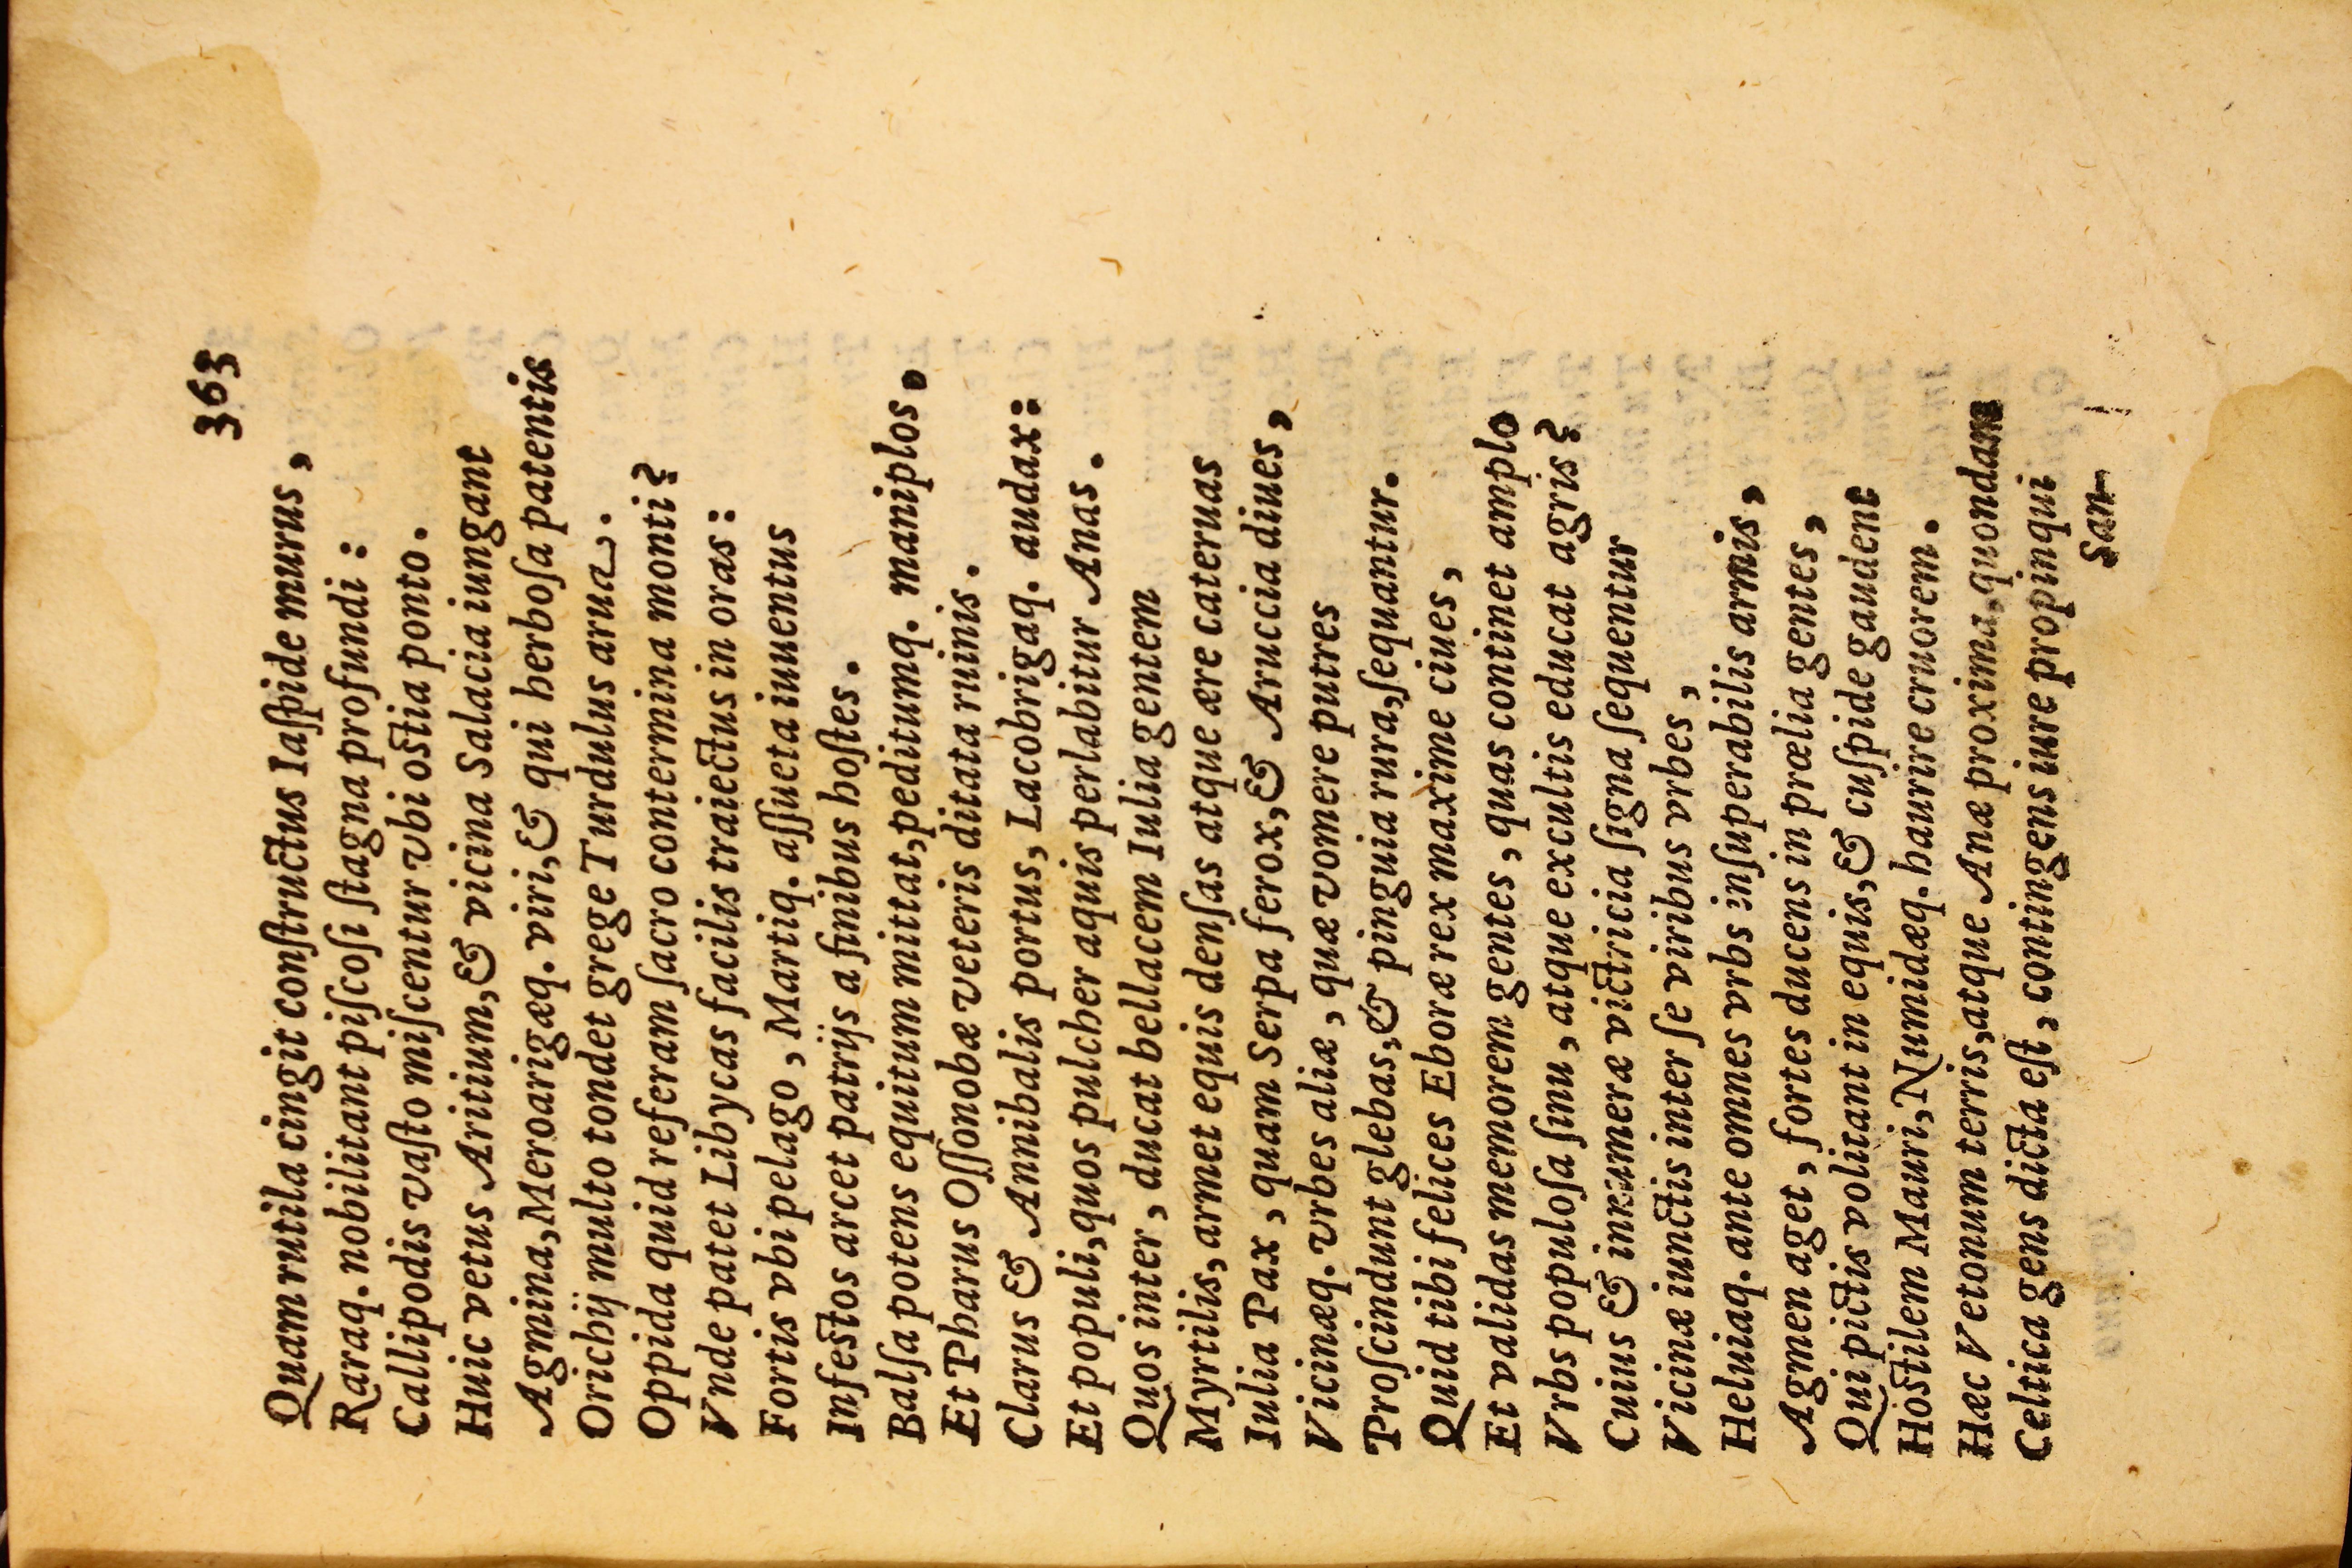 363
Quam rutila cingit conſtructus Iaſpide murus,
Raraq. nobilitant piſcoſi ſtagna profundi:
Callipodis vaſto miſcentur vbi oſtia ponto.
Huic vetus Aritium, & vicina Salacia iungant
Agmina, Meroarigæq. viri, & qui herboſa patentis
Orichij multo tondet grege Turdulus arua.
Oppida quid referam ſacro contermina monti?
Vnde patet Libycas facilis traiectus in oras:
Fortis vbi pelago, Martiq. aſſueta iuuentus
Infeſtos arcet patrijs a finibus hoſtes.
Balſa potens equitum mittat, peditumq. maniplos.
Et Pharus Oſſonobæ veteris ditata ruinis.
Clarus & Annibalis portus, Lacobrigaq. audax:
Et populi, quos pulcher aquis perlabitur Anas.
Quos inter, ducat bellacem Iulia gentem
Myrtilis, armet equis denſas atque ære cateruas
Iulia Pax, quam Serpa ferox, & Aruccia diues,
Vicinæq. vrbes aliæ, quæ vomere putres
Proſcindunt glebas, & pinguia rura, ſequantur.
Quid tibi felices Eboræ rex maxime ciues,
Et validas memorem gentes, quas continet amplo
Vrbs populoſa ſinu, atque excultis educat agris?
Cuius & innumeræ victricia ſigna ſequentur
Vicinæ iunctis inter ſe viribus vrbes,
Heluiaq. ante omnes vrbs inſuperabilis armis,
Agmen aget, fortes ducens in prælia gentes,
Qui pictis volitant in equis, & cuſpide gaudent
Hoſtilem Mauri, Numidæq. haurire cruorem.
Hæc Vetonum terris, atque Anæ proxima, quondam
Celtica gens dicta eſt, contingens iure propinqui
San-